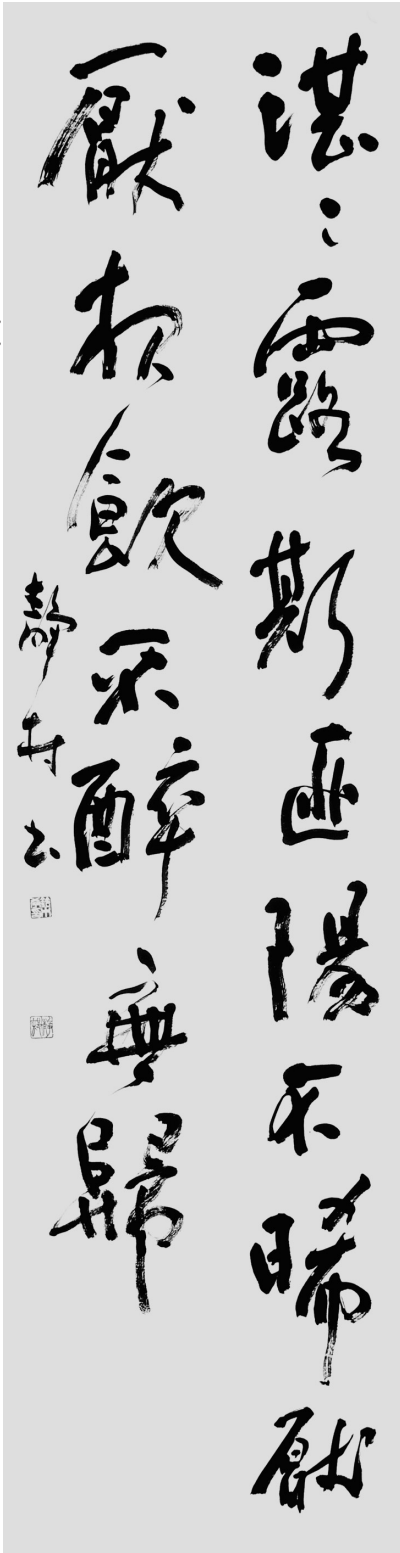 湛々露斯匪陽不晞厭
厭夜飲不醉無歸
靜村书